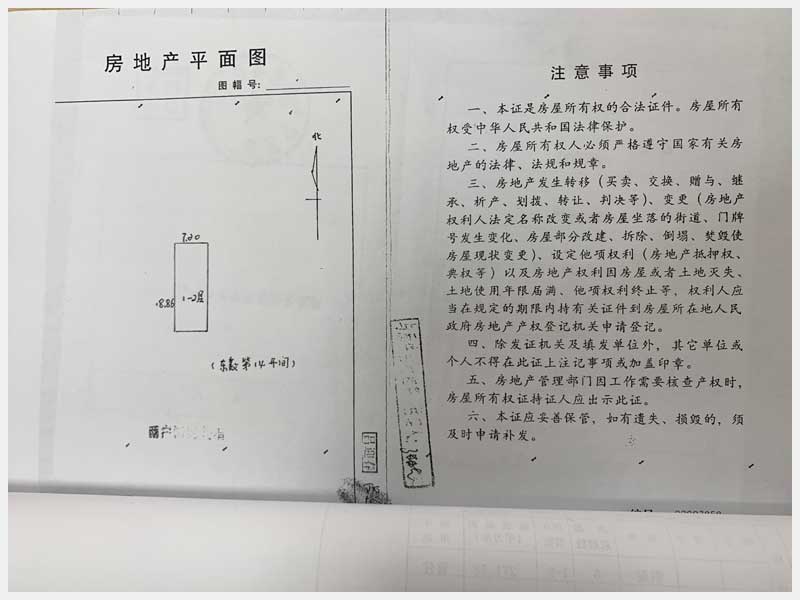 房地产平面图
图幅号:
北
7.20
18.86
1-2层
(东数第14开间)
注意事项
一、本证是房屋所有权的合法证件。房屋所有
权受中华人民共和国法律保护。
二、房屋所有权人必须严格遵守国家有关房
地产的法律、法规和规章。
三、房地产发生转移(买卖、交换、赠与、继
承、析产、划拨、转让、判决等)、变更(房地产
权利人法定名称改变或者房屋坐落的街道、门牌
号发生变化、房屋部分改建、拆除、倒塌、焚毁使
房屋现状变更)、设定他项权利(房地产抵押权、
典权等)以及房地产权利因房屋或者土地灭失、
土地使用年限届满、他项权利终止等,权利人应
当在规定的期限内持有关证件到房屋所在地人民
政府房地产产权登记机关申请登记。
四、除发证机关及填发单位外,其它单位或
个人不得在此证上注记事项或加盖印章。
五、房地产管理部门因工作需要核查产权时,
房屋所有权证持证人应出示此证。
六、本证应妥善保管,如有遗失、损毁的,须
及时申请补发。